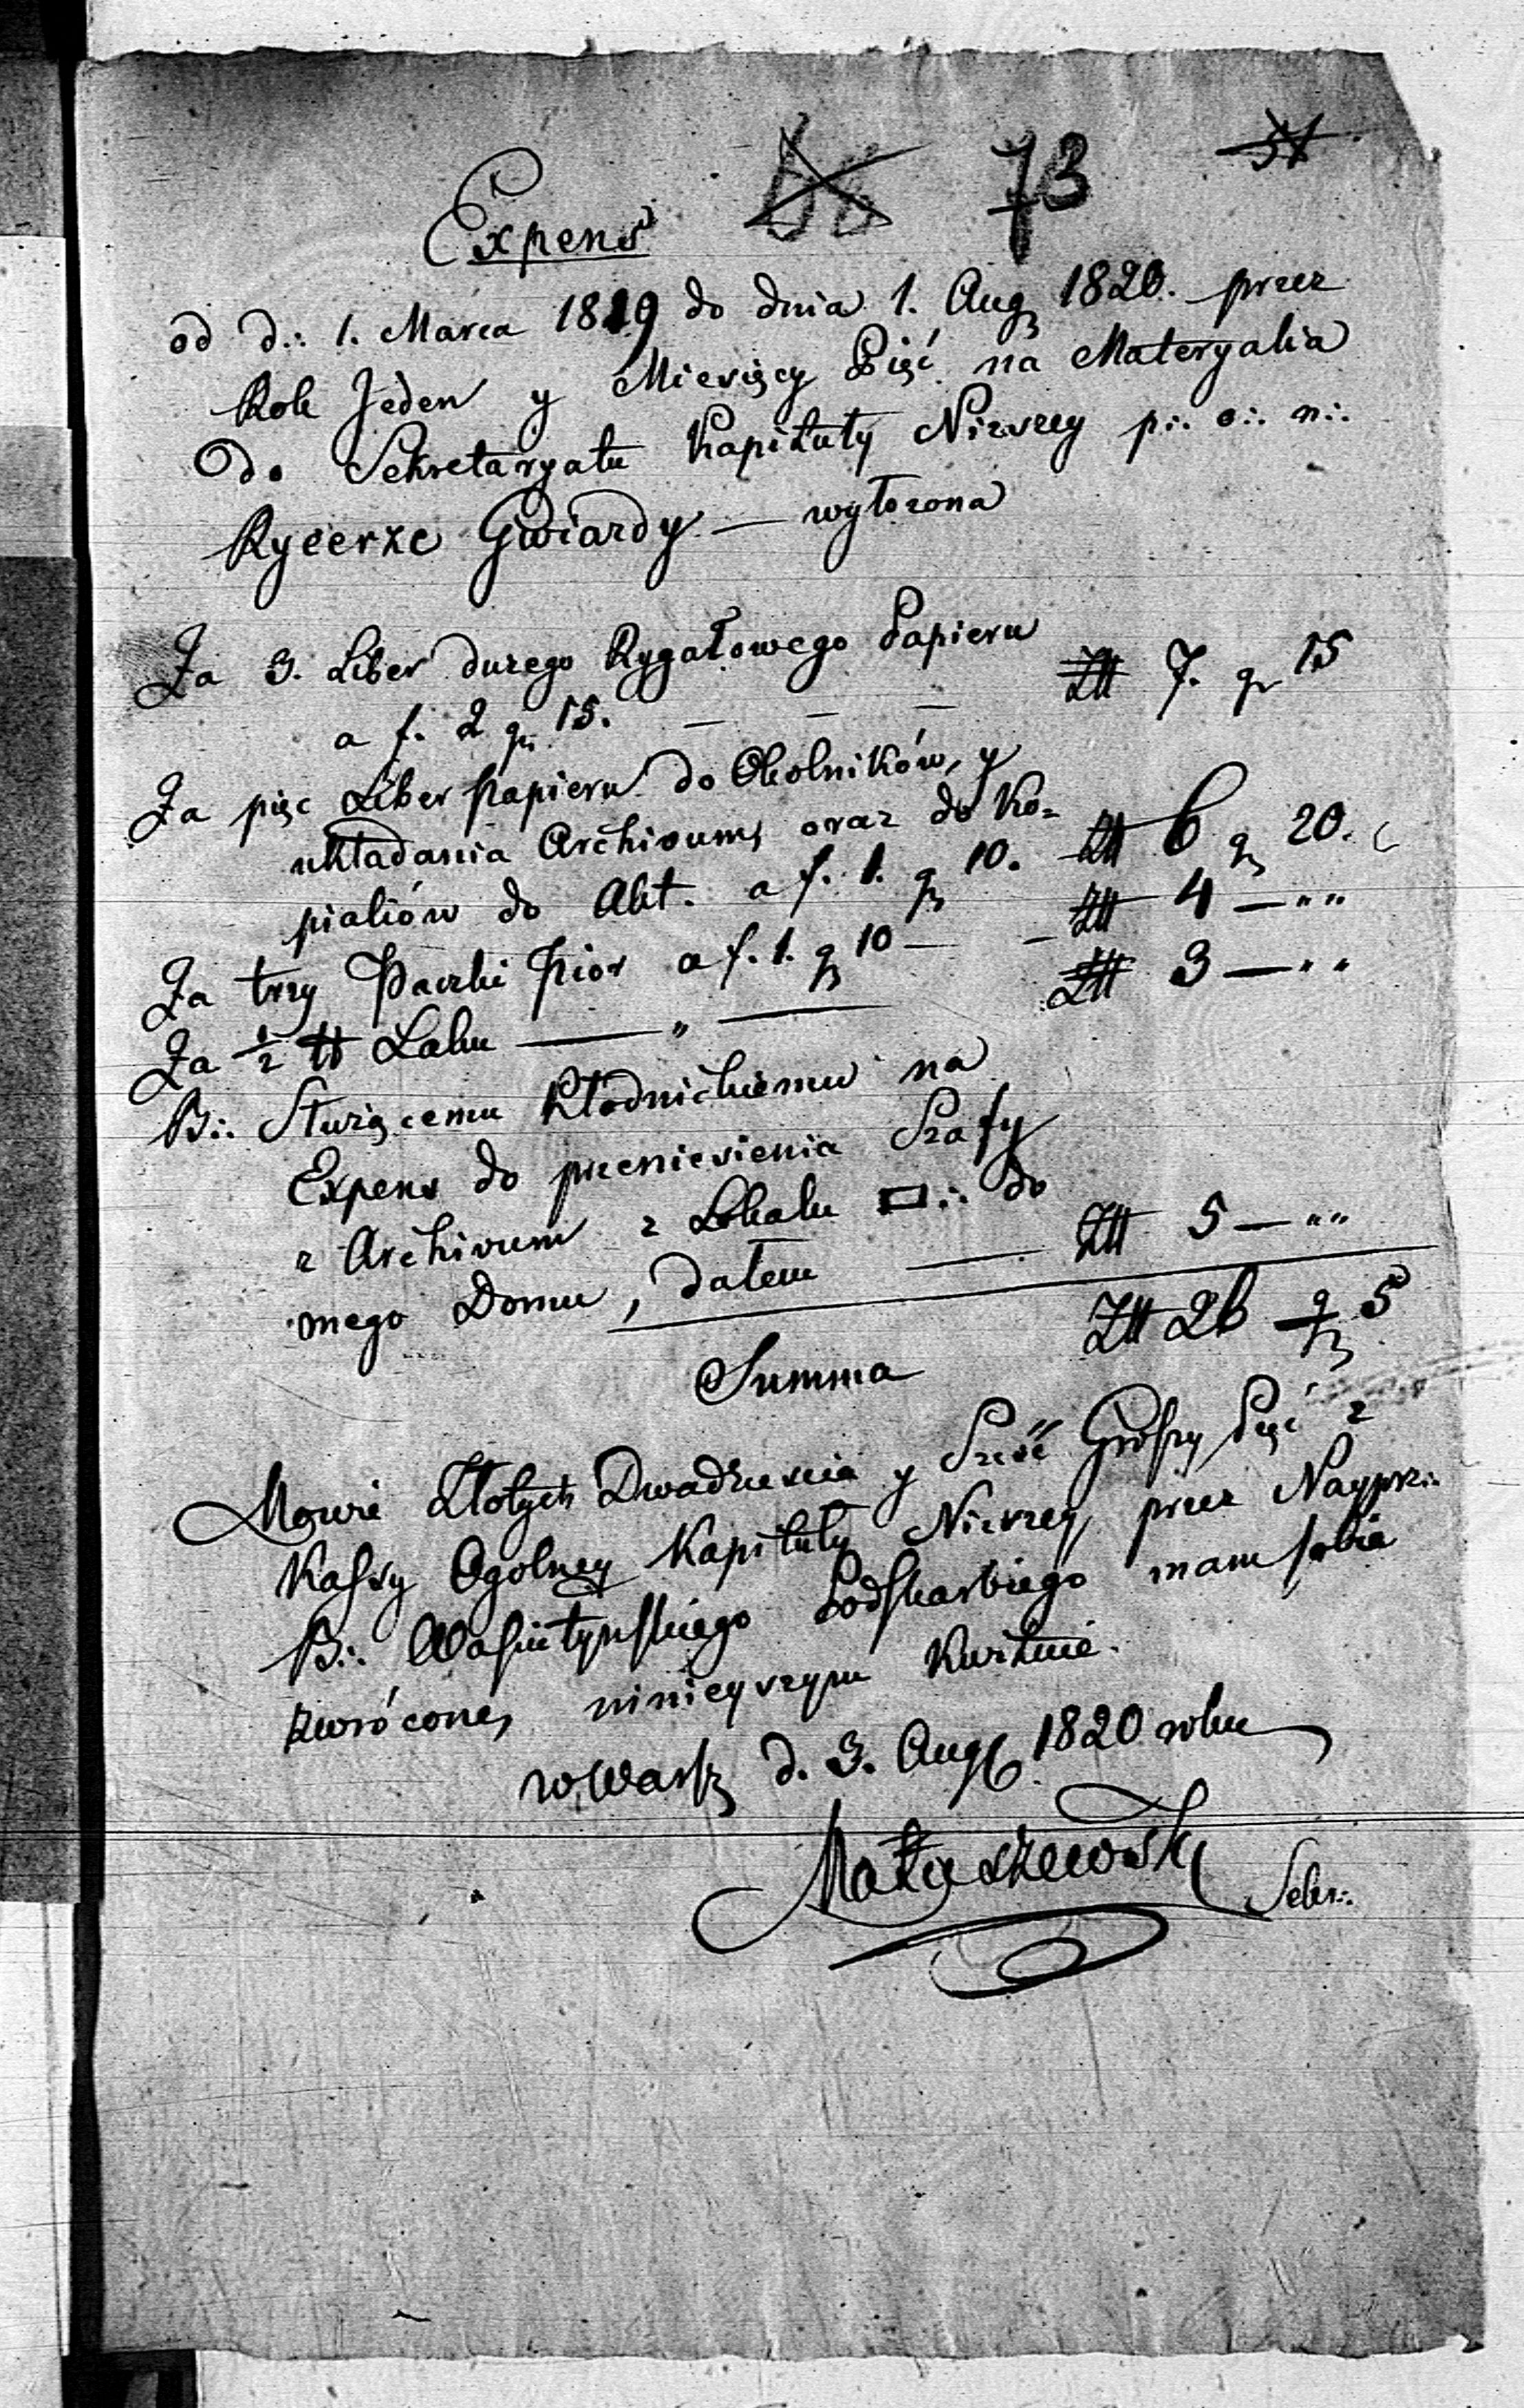 73 57
Expens
od d:. 1. Marca 1819 do dnia 1. Aug 1820. przez
Rok Jeden y Miesięcy Pięć na Materyalia
do Sekretaryatu Kapituły Niższey p:. o:. n:.
Rycerze Gwiazdy — wyłożona
Za 3. Liber dużego Rygałowego Papieru
a f. 2 gr 15. — — — Złł 7. gr 15
Za pięc Liber papieru do Okolników, y
układania Archivum, oraz do Ko=
pialiów do Akt. a f. 1. gr 10. Złł 6 gr 20.
Za trzy Paczki Piór a f. 1. gr 10 — — Złł 4 — „ „
Za ½ ℔ Laku — „ — Złł 3 — „ „
B:. Służącemu Kłodnickiemu na
Expens do przeniesienia Szafy
z Archivum z Lokalu ▭:. do
mego Domu, dałem — Złł 5 — „ „
Summa Złł 26 gr 5
Mowie Złotych Dwadzieścia y Sześć Groszy Pięć z
Kassy Ogolney Kapituły Niższey, przez Nayprz:.
B:. Podskarbiego mam sobie
zwrócone, ninieyszym Kwituié.
w Warsz d. 3. Aug 1820 roku
Matuszewski Sekr:.